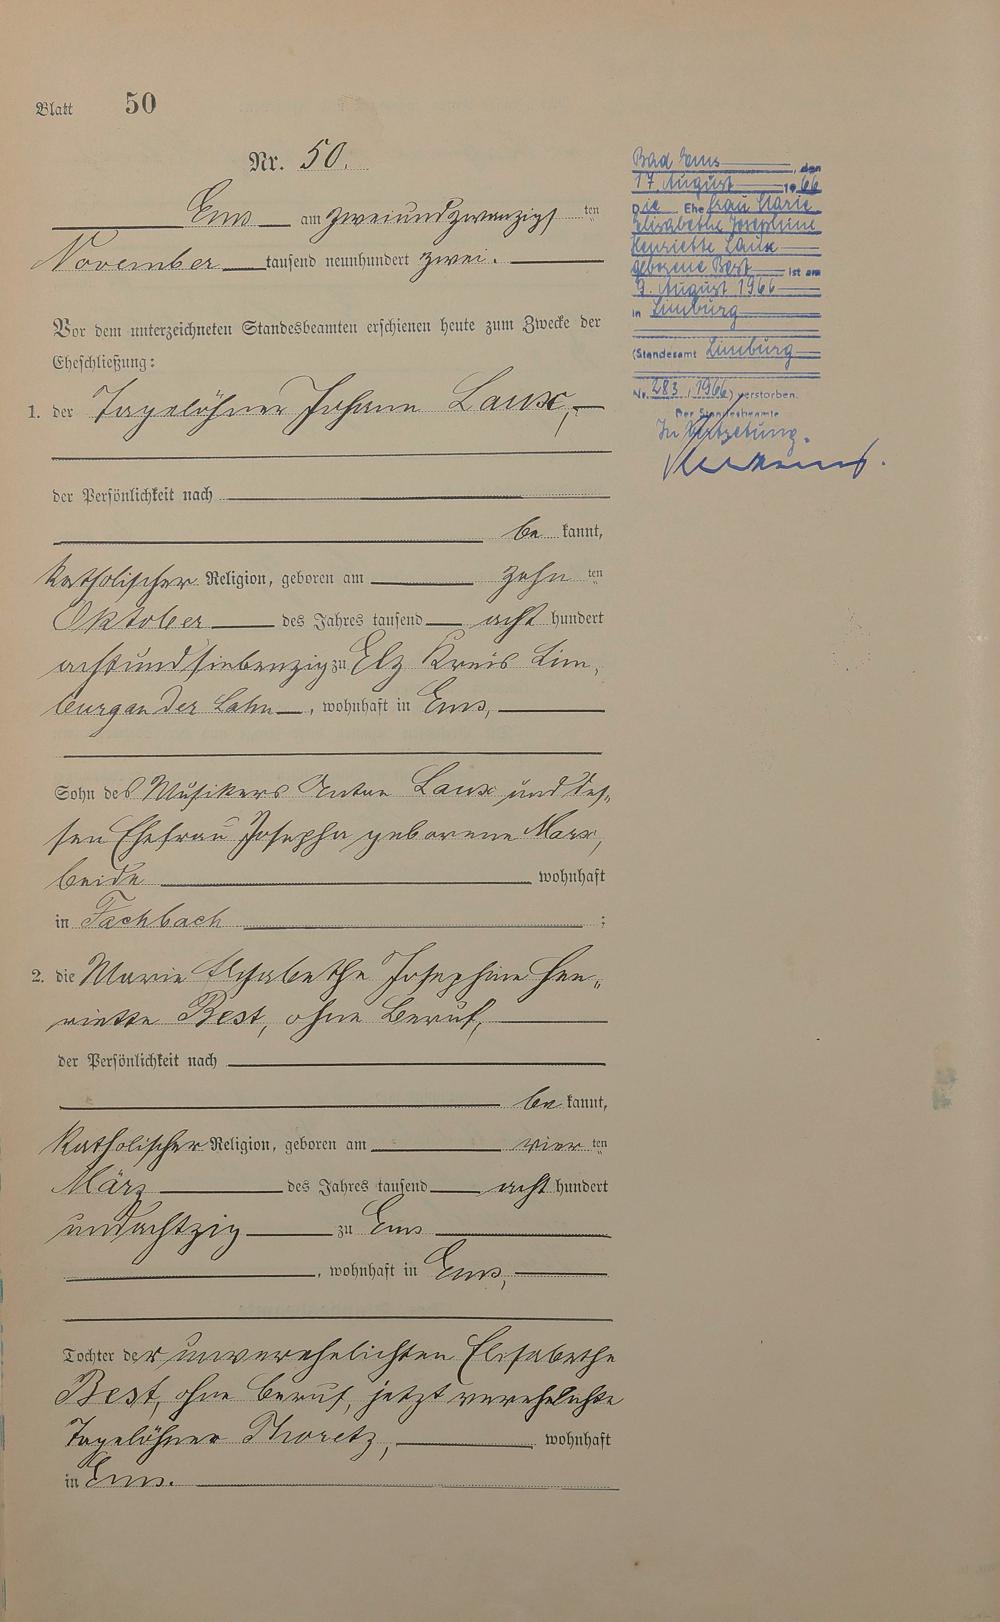 Blatt 50
Nr. 50.
Ems am zweiundzwanzigsten
November tausend neunhundert zwei.
Vor dem unterzeichneten Standesbeamten erschienen heute zum Zwecke der
Eheschließung:
1. der Tagelöhner Johann Laux,
der Persönlichkeit nach
be kannt,
katholischer Religion, geboren am zehn ten
Oktober des Jahres tausend acht hundert
achtundsiebenzig zu Elz Kreis Lim-
burg an der Lahn, wohnhaft in Ems,
Sohn des Musikers Anton Laux und des-
sen Ehefrau Josepha geborene Marx,
beide wohnhaft
in Fachbach ;
2. die Marie Elisabethe Josephine Hen-
riette Best, ohne Beruf,
der Persönlichkeit nach
be kannt,
katholischer Religion, geboren am vier ten
März des Jahres tausend acht hundert
undachtzig zu Ems
, wohnhaft in Ems,
Tochter der unverehelichten Elisabethe
Best, ohne Beruf, jetzt verehelichte
Tagelöhner Thoretz, wohnhaft
in Ems.
Bad Ems, den
17. August 1966
Die Ehefrau Marie
Elisabethe Josephine
Henriette Laux
geborene Best ist am
9. August 1966
in Limburg
(Standesamt Limburg
Nr. 283/1966) verstorben.
Der Standesbeamte
In Vertretung.